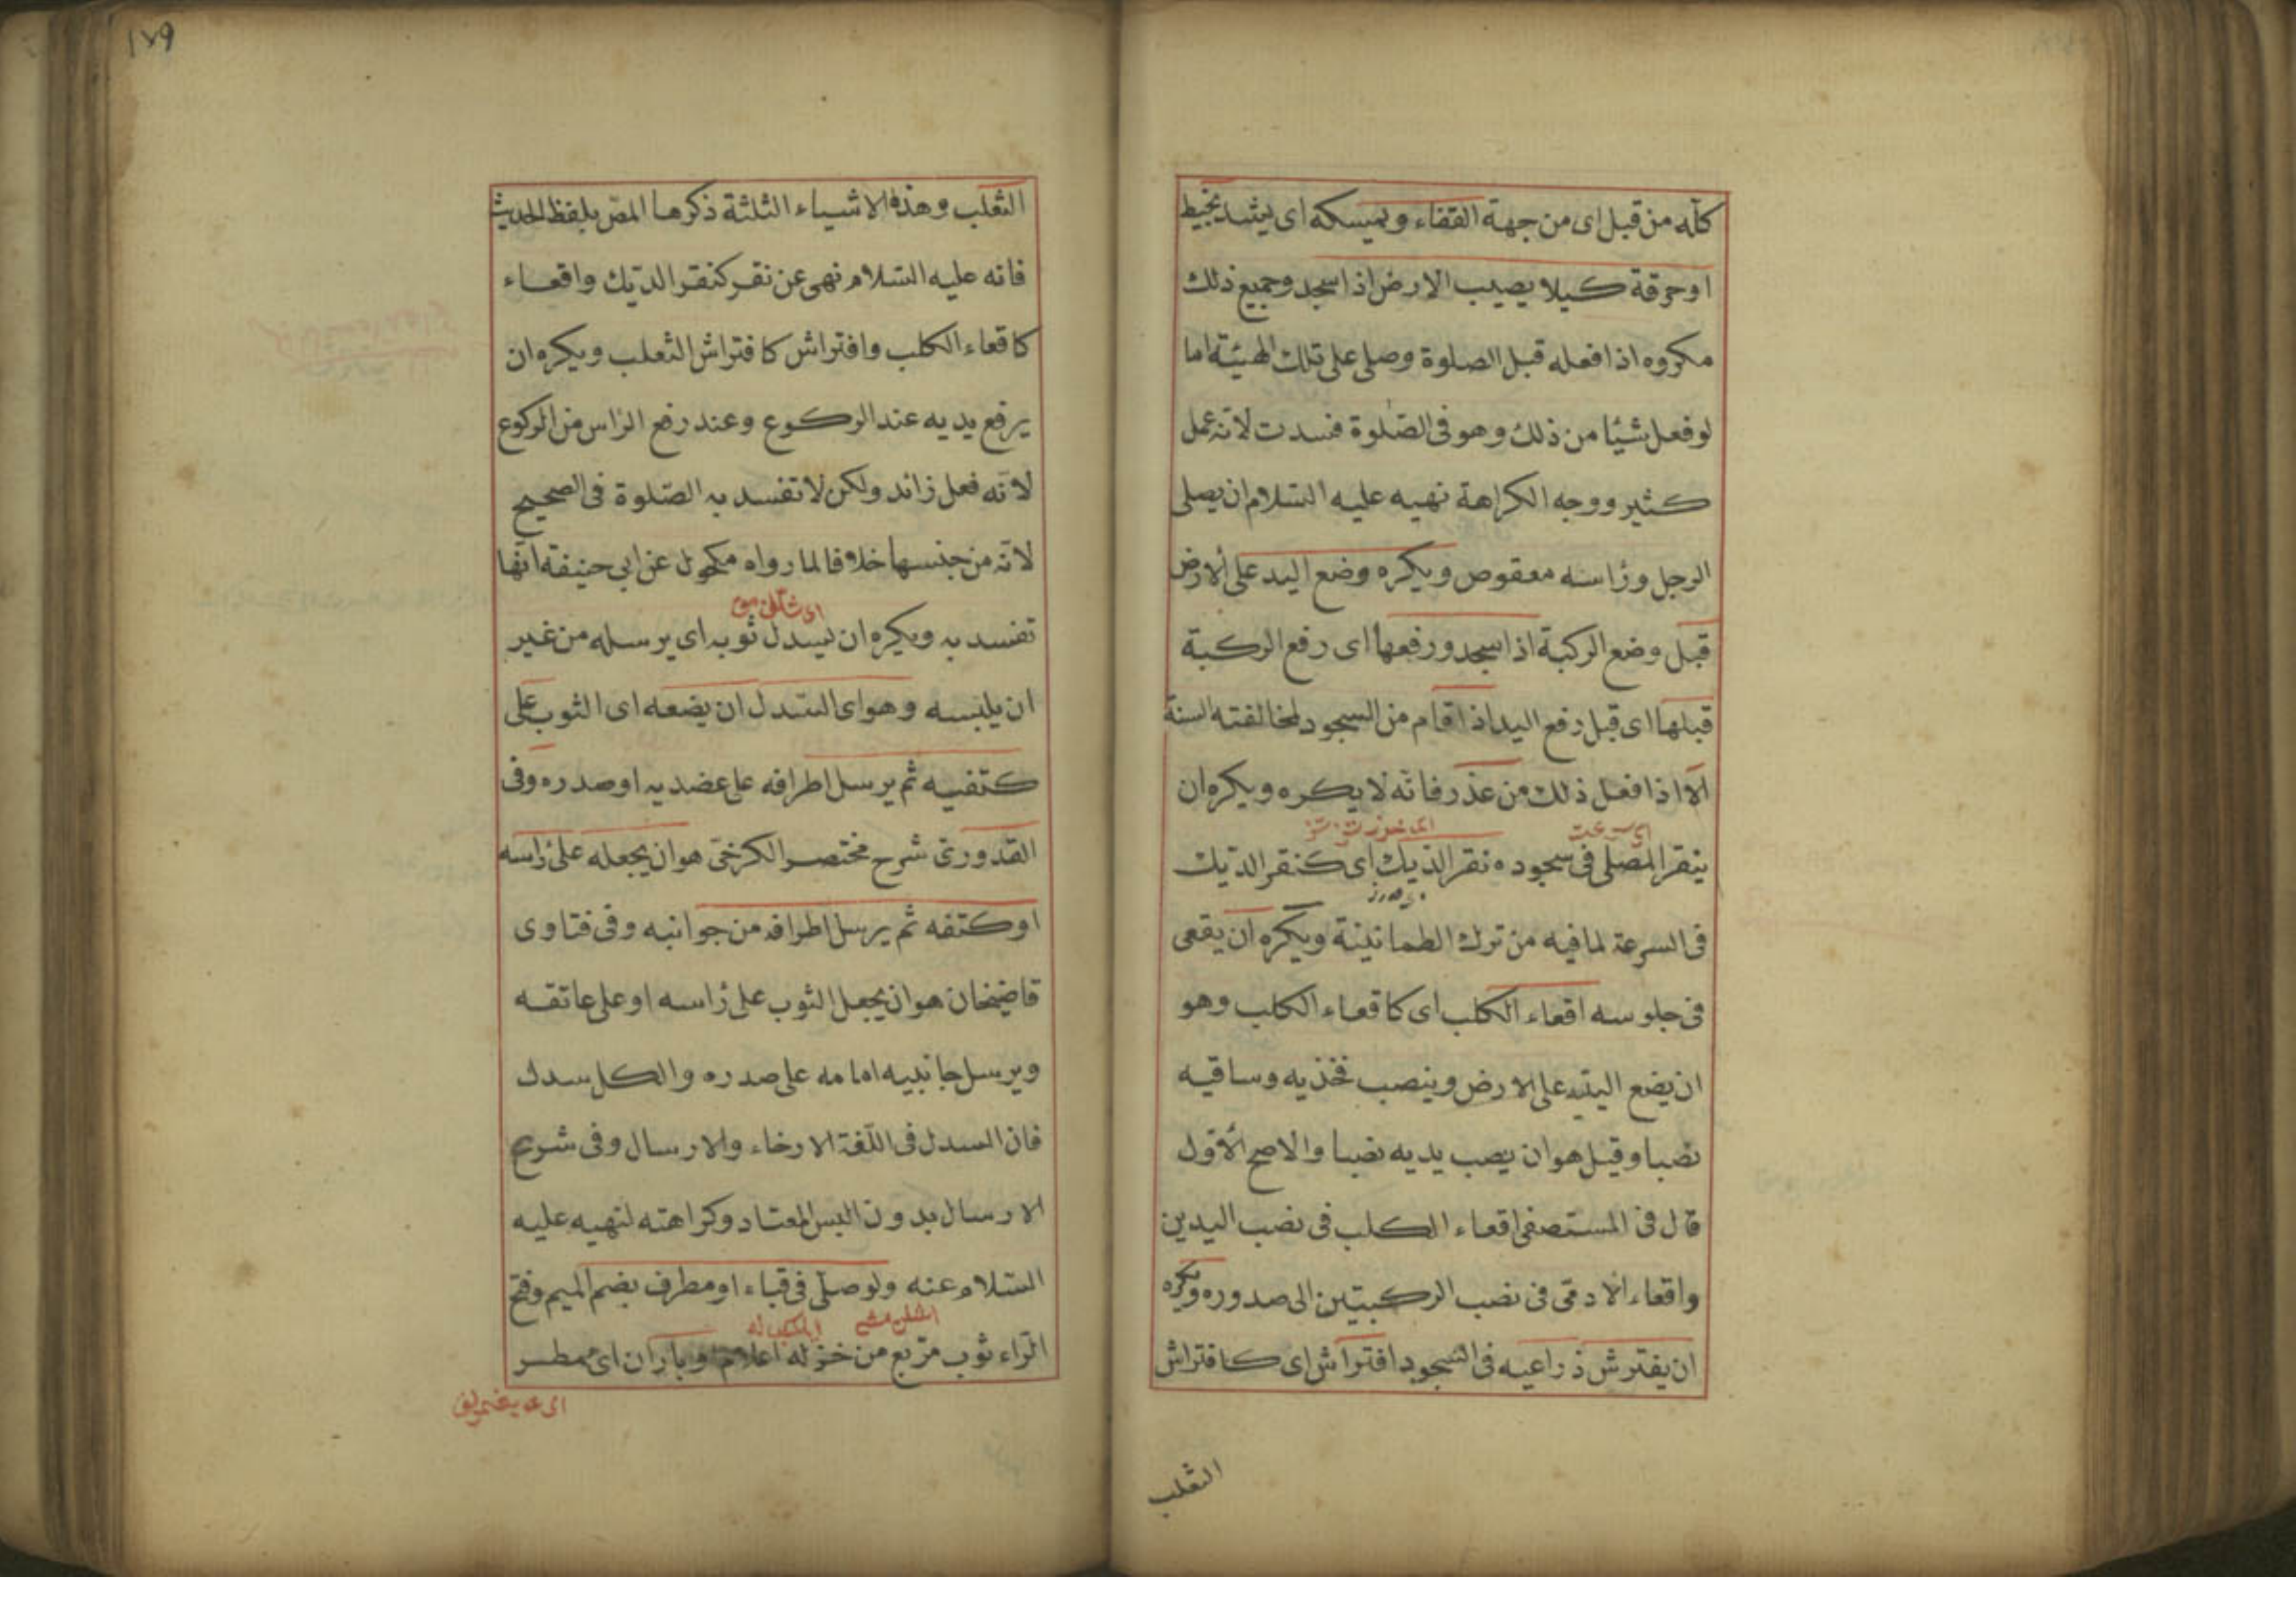 كله من قبل اى من جهة القفاء ويمسكه اى يشد بخيط
او خرقة كيلا يصيب الارض اذا سجد وجميع ذلك
مكروه اذا فعله قبل الصلوة وصلى على تلك الهيئة اما
لو فعل شيئا من ذلك وهو فى الصلوة فسدت لانه عمل
كثير ووجه الكراهة نهيه عليه السلام ان يصلى
الرجل ورأسه معقوص ويكره وضع اليد على الارض
قبل وضع الركبة اذا سجد ورفعها اى رفع الركبة
قبلها اى قبل رفع اليد اذا قام من السجود لمخالفته السنة
الا اذا فعل ذلك من عذر فانه لا يكره ويكره ان
ينقر المصلى فى سجوده نقر الديك اى كنقر الديك
فى السرعة لما فيه من ترك الطمانينة ويكره ان يقعى
فى جلوسه اقعاء الكلب اى كاقعاء الكلب وهو
ان يضع اليتيه على الارض وينصب فخذيه وساقيه
نصبا وقيل هو ان يصب يديه نصبا والاصح الاول
قال فى المستصفى اقعاء الكلب فى نصب اليدين
واقعاء الادمى فى نصب الركبتين الى صدوره ويكره
ان يفترش ذراعيه فى السجود افتراش اى كافتراش
الثعلب
١٧٩
الثعلب وهذه الاشياء الثلثة ذكرها المص بلفظ الحديث
فانه عليه السلام نهى عن نقر كنقر الديك واقعاء
كاقعاء الكلب وافتراش كافتراش الثعلب ويكره ان
يرفع يديه عند الركوع وعند رفع الراس من الركوع
لانه فعل زائد ولكن لا تفسد به الصلوة فى الصحيح
لانه من جنسها خلافا لما رواه مكحول عن ابى حنيفة انها
تفسد به ويكره ان يسدل ثوبه اى يرسله من غير
ان يلبسه وهو اى السدل ان يضعه اى الثوب على
كتفيه ثم يرسل اطرافه على عضديه او صدره وفى
القدورى شرح مختصر الكرخى هو ان يجعله على راسه
او كتفه ثم يرسل اطرافه من جوانبه وفى فتاوى
قاضيخان هو ان يجعل الثوب على راسه او على عاتقه
ويرسل جانبيه امامه على صدره والكل سدل
فان السدل فى اللغة الارخاء والارسال وفى شرع
الارسال بدون البس المعتاد وكراهته لنهيه عليه
السلام عنه ولو صلى فى قباء او مطرف بضم الميم وفتح
الراء ثوب مربع من خز له اعلام او باران اى مطر